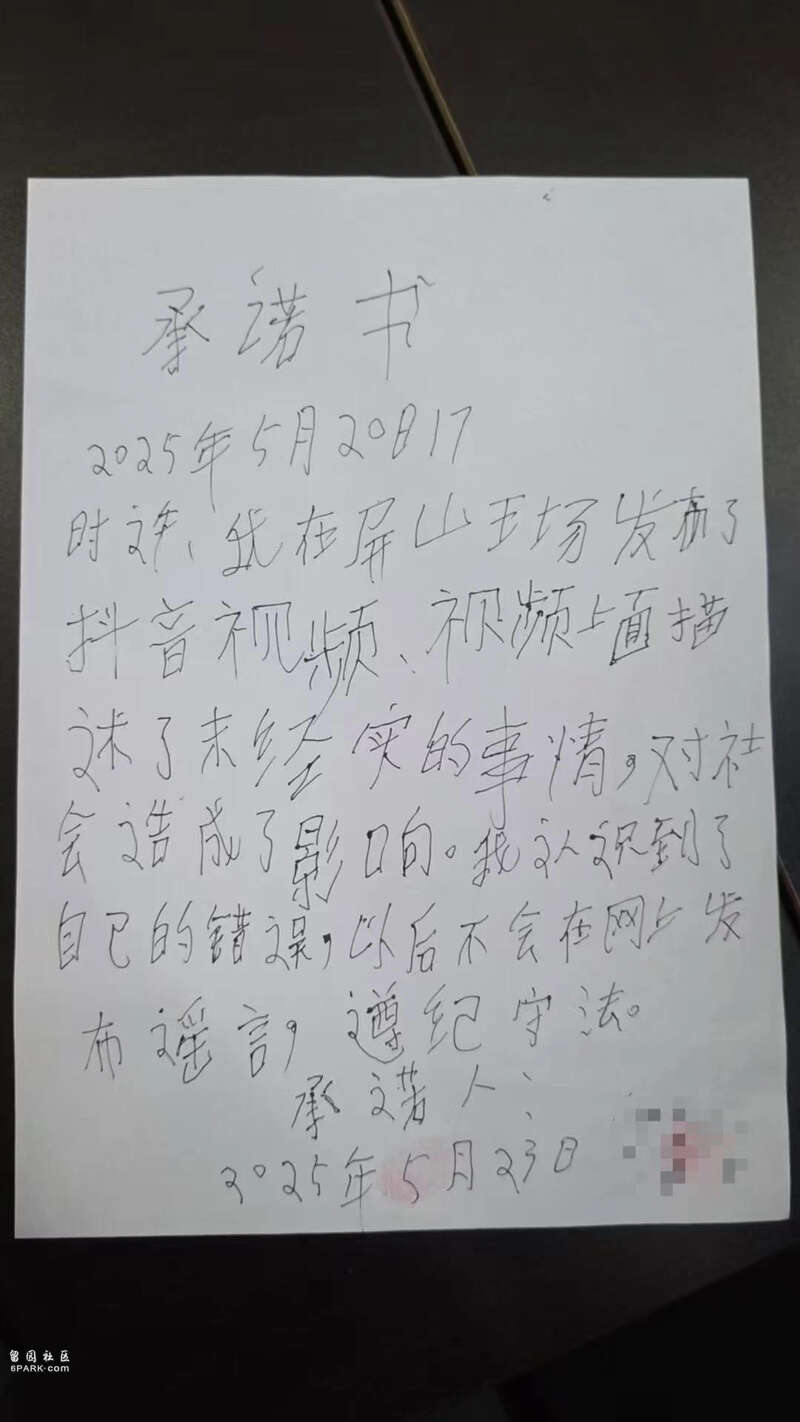 承诺书
2025年5月20日17
时许、我在屏山王场发布了
抖音视频、视频上面描
述了未经实的事情,对社
会造成了影响。我认识到了
自己的错误,以后不会在网上发
布谣言,遵纪守法。
承诺人:
2025年5月23日
留园社区
6PARK.com